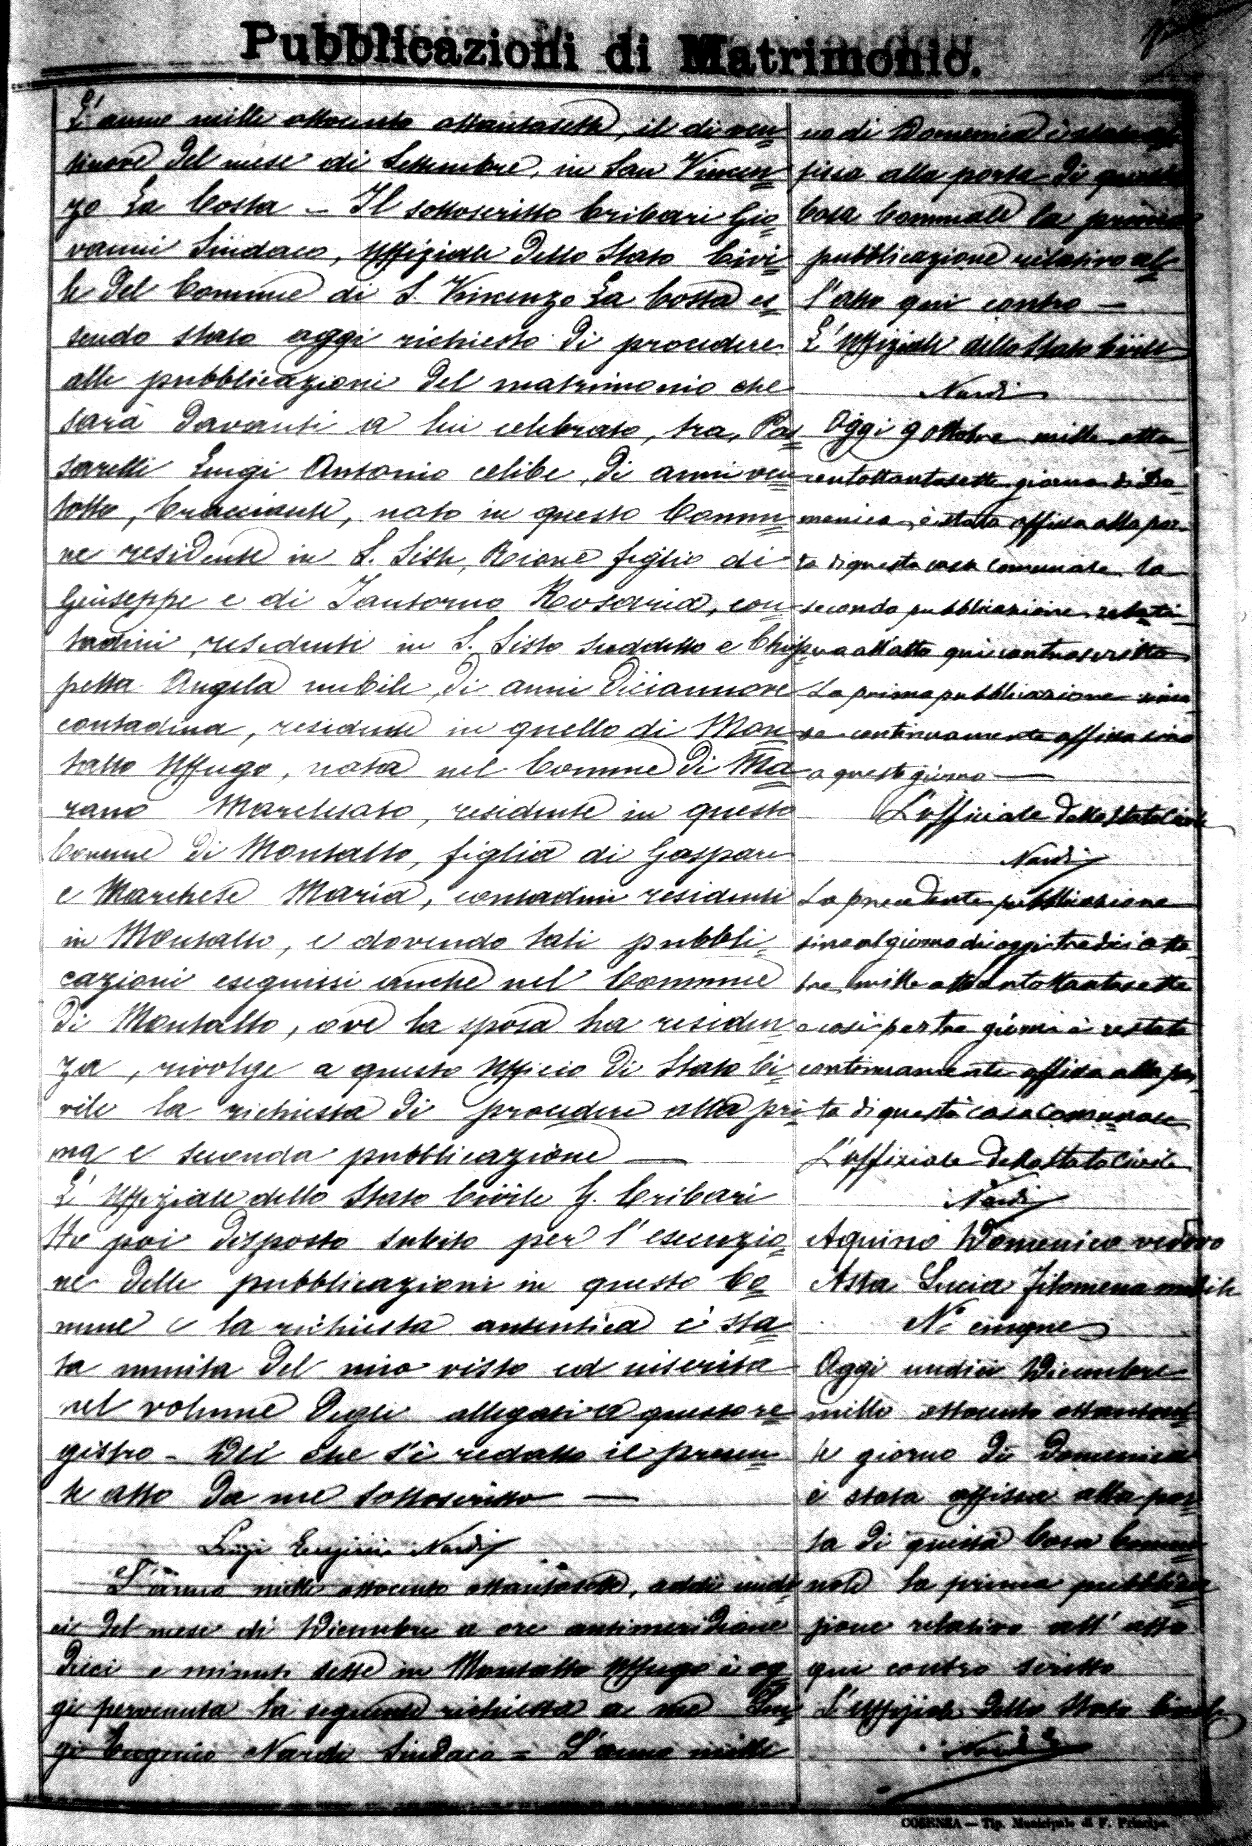 Pubblicazioni di Matrimonio.
L'anno mille ottocento ottantasette, il di ven
tinove del mese di Settembre, in San Vincen
zo La Costa — Il sottoscritto Cribari Gio
vanni Sindaco, Uffiziale dello Stato Civi
le del Comune di S. Vincenzo La Costa es
sendo stato oggi richiesto di procedere
alle pubblicazioni del matrimonio che
sarà davanti a lui celebrato, tra, Pas
sarelli Luigi Antonio celibe, di anni ven
totto, bracciante, nato in questo Comu
ne residente in S. Sisto, Rione figlio di
Giuseppe e di Santorno Rosaria, con
tadini, residenti in S. Sisto suddetto e Chiap
petta Angela nubile, di anni diciannove
contadina, residente in quello di Mon
talto Uffugo, nata nel Comune di Ma
rano Marchesato, residente in questo
Comune di Montalto, figlia di Gaspare
e Marchese Maria, contadini residenti
in Montalto, e dovendo tali pubbli
cazioni eseguirsi anche nel Comune
di Montalto, ove la sposa ha residen
za, rivolge a questo Ufficio di Stato Ci
vile la richiesta di procedere alla pri
ma e seconda pubblicazione —
L'Uffiziale dello Stato Civile G. Cribari
Ho poi disposto subito per l'esecuzio
ne delle pubblicazioni in questo Co
mune e la richiesta autentica è sta
ta munita del mio visto ed inserita
nel volume degli allegati a questo re
gistro — Del che s'è redatto il presen
te atto da me sottoscritto —
Luigi Eugenio Nardi
L'anno mille ottocento ottantasette, addi undi
ci del mese di Dicembre a ore antimeridiane
dieci e minuti sette in Montalto Uffugo è og
gi pervenuta la seguente richiesta a me Lui
gi Eugenio Nardi Sindaco = L'anno mille
no di Domenica è stata af
fissa alla porta di questa
Casa Comunale la prima
pubblicazione relativa al
l'atto qui contro —
L'Uffiziale dello Stato Civile
Nardi
Oggi 9 ottobre mille otto
centottantasette giorno di Do
menica, è stata affissa alla por
ta di questa casa comunale la
seconda pubblicazione relati
va all'atto qui controscritto
La prima pubblicazione rima
se continuamente affissa sino
a questo giorno —
L'officiale dello Stato Civile
Nardi
La precedente pubblicazione
sino al giorno di oggi tredici otto
bre mille ottocentottantasette
e così per tre giorni è restata
continuamente affissa alla por
ta di questa casa comunale
L'officiale dello Stato Civile
Nardi
Aquino Domenico vedovo
Asta Lucia Filomena nubile
N.° cinque
Oggi undici Dicembre
mille ottocento ottantaset
te giorno di Domenica
è stata affissa alla por
ta di questa Casa Comu
nale la prima pubblica
zione relativa all'atto
qui contro scritto
L'Uffiziale dello Stato Civile
Nardi
COSENZA — Tip. Municipale di F. Principe.